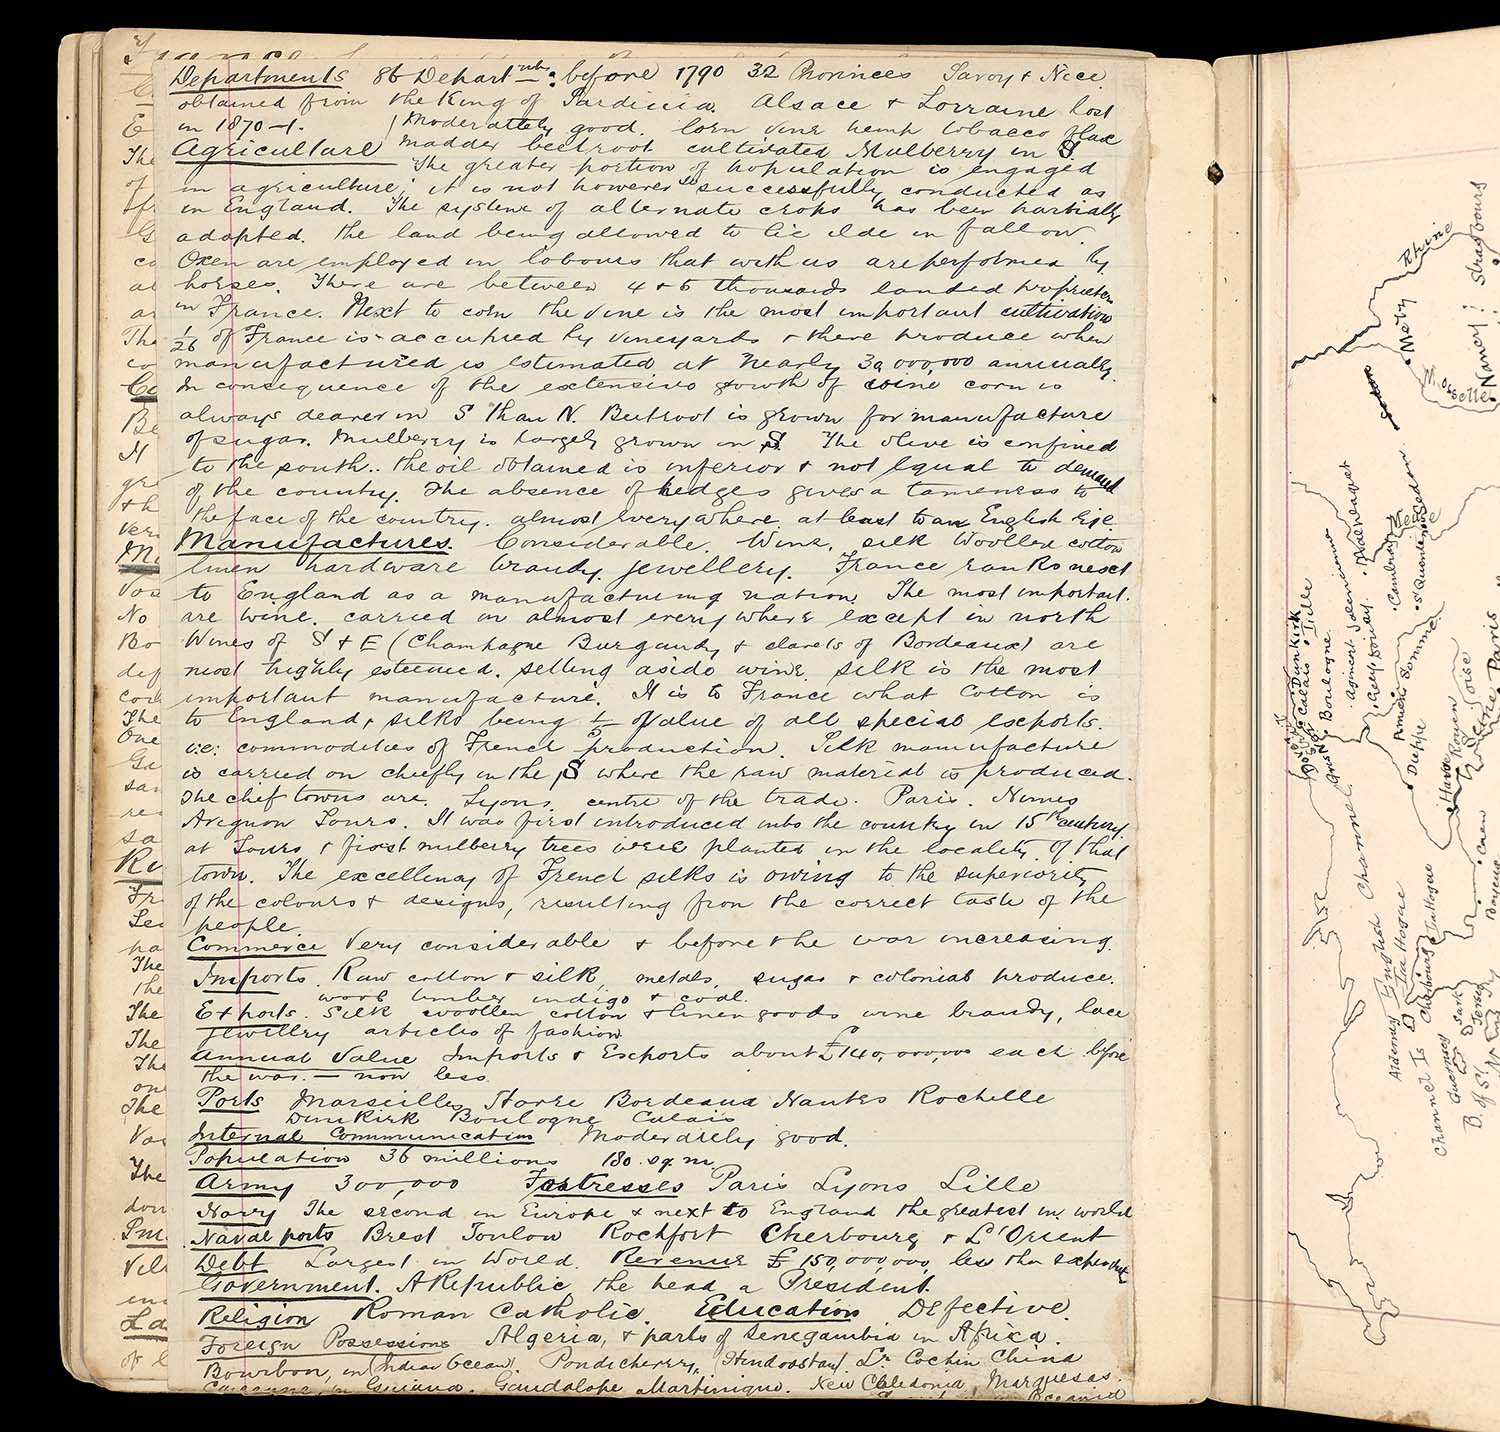 Departments 86 Departmts: before 1790 32 Provinces Savoy & Nice
obtained from the King of Sardinia. Alsace & Lorraine lost
in 1870-1.
Agriculture Moderately good. Corn vine hemp tobacco flax
madder beetroot cultivated Mulberry in S.
The greater portion of population is engaged
in agriculture; it is not however so successfully conducted as
in England. The system of alternate crops has been partially
adopted. the land being allowed to lie idle in fallow.
Oxen are employed in labours that with us are performed by
horses. There are between 4 & 5 thousands landed proprietors
in France. Next to corn the vine is the most important cultivation
1/26 of France is accupied by vineyards & there produce when
manufactured is estimated at nearly 30,000,000 annually.
In consequence of the extensive growth of wine corn is
always dearer in S than N. Beetroot is grown for manufacture
of sugar. Mulberry is largely grown in S. The olive is confined
to the south.. the oil obtained is inferior & not equal to demand
of the country. The absence of hedges gives a tameness to
the face of the country. almost everywhere. at least to an English Eye.
Manufactures. Considerable. Wine, silk Woollen cotton
linen hardware brandy. jewellery. France ranks next
to England as a manufacturing nation. The most important.
are wine. carried on almost everywhere except in north
Wines of S & E (Champagne Burgundy & clarets of Bordeaux) are
most highly esteemed. selling aside wine. silk is the most
important manufacture. It is to France what Cotton is
to England, silks being 1/5 of value of all special exports.
i.e: commodities of French production. Silk manufacture
is carried on chiefly in the S where the raw material is produced.
The chef towns are. Lyons. centre of the trade. Paris. Nimes
Avignon Tours. It was first introduced into the country in 15th century.
at Tours & first mulberry trees were planted in the locality of that
town. The excellency of French silks is owing to the superiority
of the colours & designs, resulting from the correct taste of the
people.
Commerce Very considerable & before the war increasing.
Imports. Raw cotton & silk, metals, sugar & colonial produce.
wool timber indigo & coal.
Exports. Silk woollen cotton & linen goods wine brandy, lace
jewellry articles of fashion
Annual Value Imports & Exports about £140,000,000 each before
the war. — now less.
Ports Marseilles Havre Bordeaux Nantes Rochelle
Dunkirk Boulogne Calais
Internal Communication Moderately good.
Population 36 millions 180. sq m.
Army 300,000 Fortresses Paris Lyons Lille
Navy The second in Europe & next to England the greatest in world
Naval ports Brest Toulon Rochfort Cherbourg & L'Orient
Debt Largest in World. Revenue £150,000,000, less than expenditure
Government. A Republic the head a President.
Religion Roman Catholic. Education Defective.
Foreign Possessions Algeria, & parts of Senegambia in Africa.
Bourbon, in (Indian Ocean). Pondicherry, (Hindoostan). Lr Cochin China
Cayenne, in Guiana. Gaudalope Martinique. New Caledonia, Marquesas.
Rhine
Strasbourg
Metz
Nancy
Moselle
Sedan
Agincourt
Cambray
St Quentin
Dunkirk
Calais
Lille
Boulogne
Amiens
Somme
Dieppe
Havre
Rouen
Oise
Paris
Caen
English Channel
La Hogue
Cherbourg
Alderney
Channel Is
Guernsey
Sark
Jersey